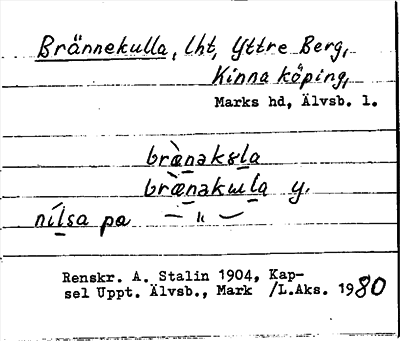 Brännekulla, lht, Yttre Berg,
Kinna köping,
Marks hd, Älvsb. l.
bræ̀nəkɷla
bræ̀nəkɯla y.
nílsa pa — " —
Renskr. A. Stalin 1904, Kap-
sel Uppt. Älvsb., Mark /L.Aks. 1980